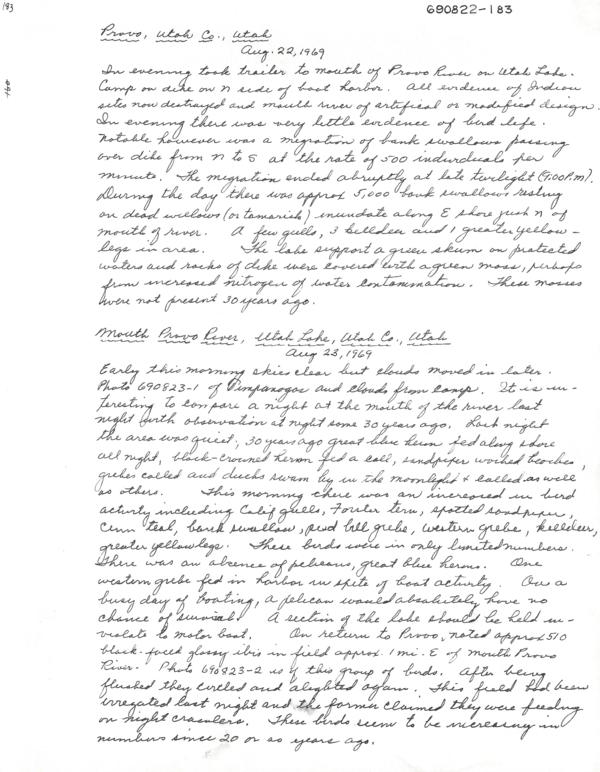 183
690822-183
Provo, Utah Co., Utah
Aug. 22, 1969
In evening took trailer to mouth of Provo River on Utah Lake.
Camp on dike on N side of boat harbor. All evidence of Indian
sites now destroyed and mouth river of artifical or modified design.
In evening there was very little evidence of bird life.
Notable however was a migration of bank swallows passing
over dike from N to S at the rate of 500 individuals per
minute. The migration ended abruptly at late twilight (9:00 P.M).
During the day there was approx 5,000 bank swallows resting
on dead willows (or tamarisk) inundate along E shore just N of
mouth of river. A few gulls, 3 killdeer and 1 greater yellow-
legs in area. The lake support a green skum on protected
waters and rocks of dike were covered with a green moss, perhaps
from increased nitrogen of water contamination. These mosses
were not present 30 years ago.
Mouth Provo River, Utah Lake, Utah Co., Utah
Aug 23, 1969
Early this morning skies clear but clouds moved in later.
Photo 690823-1 of Timpanogos and clouds from camp. It is in-
teresting to compare a night at the mouth of the river last
night with observation at night some 30 years ago. Last night
the area was quiet, 30 years ago great blue heron fed along shore
all night, black-crowned heron fed & call, sandpiper worked beaches,
grebes called and ducks swam by in the moonlight & called as well
as others. This morning there was an increased in bird
activity including Calif gulls, Forster tern, spotted sandpiper,
Cinn teal, bank swallow, pied bill grebe, western grebe, killdeer,
greater yellowlegs. These birds were in only limited numbers.
There was an absence of pelicans, great blue herons. One
western grebe fed in harbor in spite of boat activity. On a
busy day of boating, a pelican would absolutely have no
chance of survival. A section of the lake should be held in-
violate to motor boat. On return to Provo, noted approx 510
black-faced glossy ibis in field approx. 1 mi. E of mouth Provo
River. Photo 690823-2 is of this group of birds. After being
flushed they circled and alighted again. This field had been
irregated last night and the farmer claimed they were feeding
on night crawlers. These birds seem to be increasing in
numbers since 20 or so years ago.